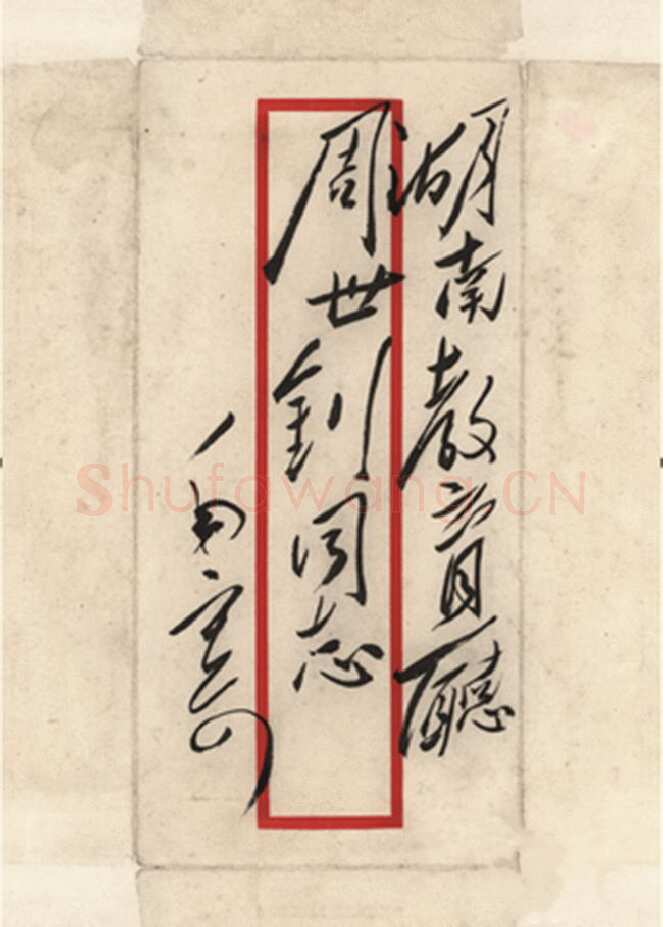 湖南教育廳
周世釗同志
Shufawang.CN